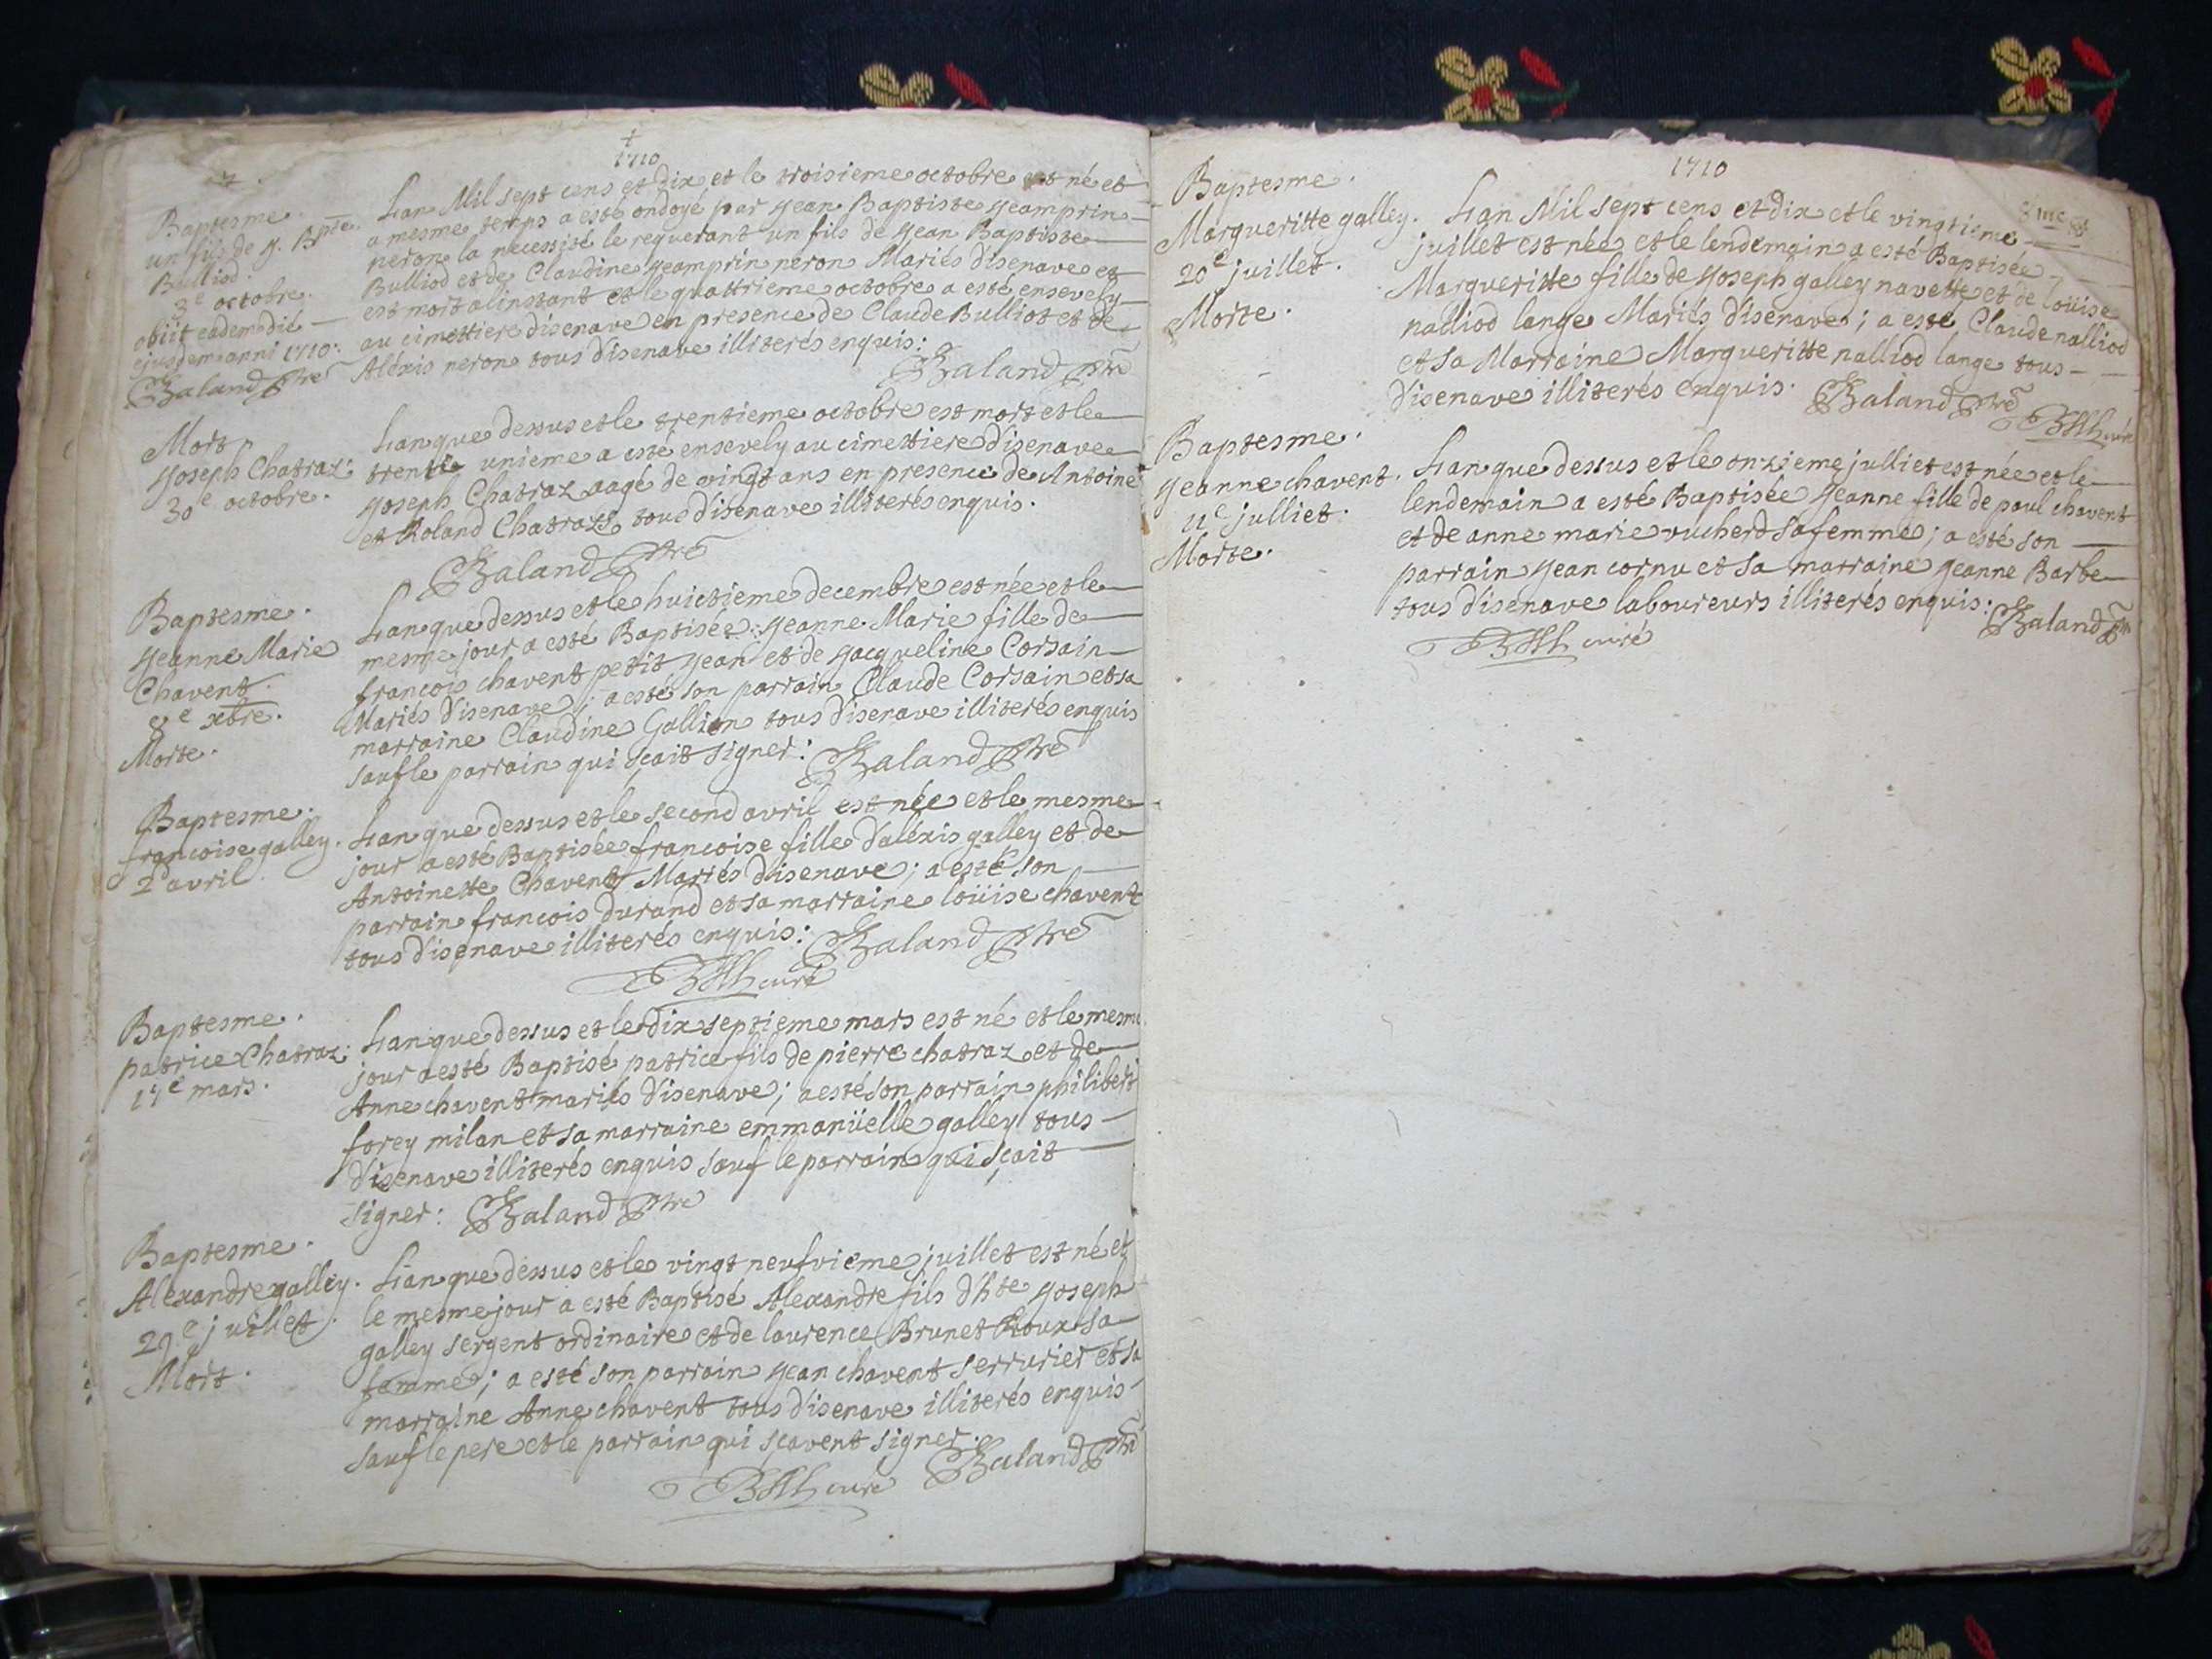 1710
Baptesme.
un fils de y. Bpte.
Bulliod
3e octobre.
obiit eadem die
ejusdem anni 1710:
Baland ptre
Lan Mil sept cens et dix et le troisieme octobre est né et
a mesme temps a esté ondoyé par yean Baptiste yeamprin
neron la necessité le requerant un fils de yean Baptiste
Bulliod et de Claudine yeamprin neron Mariés disenave et
est mort a linstant et le quattrieme octobre a esté ensevely
au cimettiere disenave en presence de Claude Bulliot et de
Aléxis neron tous disenave illiterés enquis:
Baland ptre
Mort
yoseph Chatraz:
30e octobre.
Lan que dessus et le trentieme octobre est mort et le
trente unieme a esté ensevely au cimettiere disenave
yoseph Chatraz aagé de vingt ans en presence de Antoine
et Roland Chatraz tous disenave illiterés enquis.
Baland ptre
Baptesme.
yeanne Marie
Chavent.
8e xbre.
Morte.
Lan que dessus et le huictieme decembre est née et le
mesme jour a esté Baptisée yeanne Marie fille de
francois chavent petit yean et de yacqueline Corsain
Mariés disenave; a esté son parrain Claude Corsain et sa
marraine Claudine Gallion tous disenave illiterés enquis
sauf le parrain qui sçait signer: Baland ptre
Baptesme.
francoise galley.
2d avril
Lan que dessus et le second avril est née et le mesme
jour a esté Baptisée francoise fille daléxis galley et de
Antoinette Chavent Mariés disenave; a esté son
parrain francois durand et sa marraine loüise chavent
tous disenave illiterés enquis: Baland ptre
curé
Baptesme.
patrice Chatraz:
17e mars.
Lan que dessus et le dix septieme mars est né et le mesme
jour a esté Baptisé patrice fils de pierre chatraz et de
Anne chavent mariés disenave; a esté son parrain philibert
forey milan et sa marraine emmanüelle galley tous
disenave illiterés enquis sauf le parrain qui sçait
signer: Baland ptre
Baptesme.
Alexandre galley.
29e juillet.
Mort.
Lan que dessus et le vingt neufvieme juillet est né et
le mesme jour a esté Baptisé Alexandre fils dhte yoseph
galley sergent ordinaire et de laurence Brunet Roux sa
femme; a esté son parrain yean chavent serrurier et sa
marraine Anne chavent tous disenave illiterés enquis
sauf le pere et le parrain qui sçavent signer.
curé Baland ptre
1710
Baptesme.
Margueritte galley.
20e juillet.
Morte.
Lan Mil sept cens et dix et le vingtieme
juillet est née et le lendemain a esté Baptisée
Margueritte fille de yoseph galley navette et de loüise
nalliod lange Mariés disenave; a esté Claude nalliod
et sa Marraine Margueritte nalliod lange tous
disenave illiterés enquis. Baland ptre
curé
Baptesme.
yeanne chavent.
11e julliet.
Morte.
Lan que dessus et le onzieme julliet est née et le
lendemain a esté Baptisée yeanne fille de paul chavent
et de anne marie vucherd sa femme; a esté son
parrain yean cornu et sa marraine yeanne Barbe
tous disenave laboureurs illiterés enquis: Baland ptre
curé